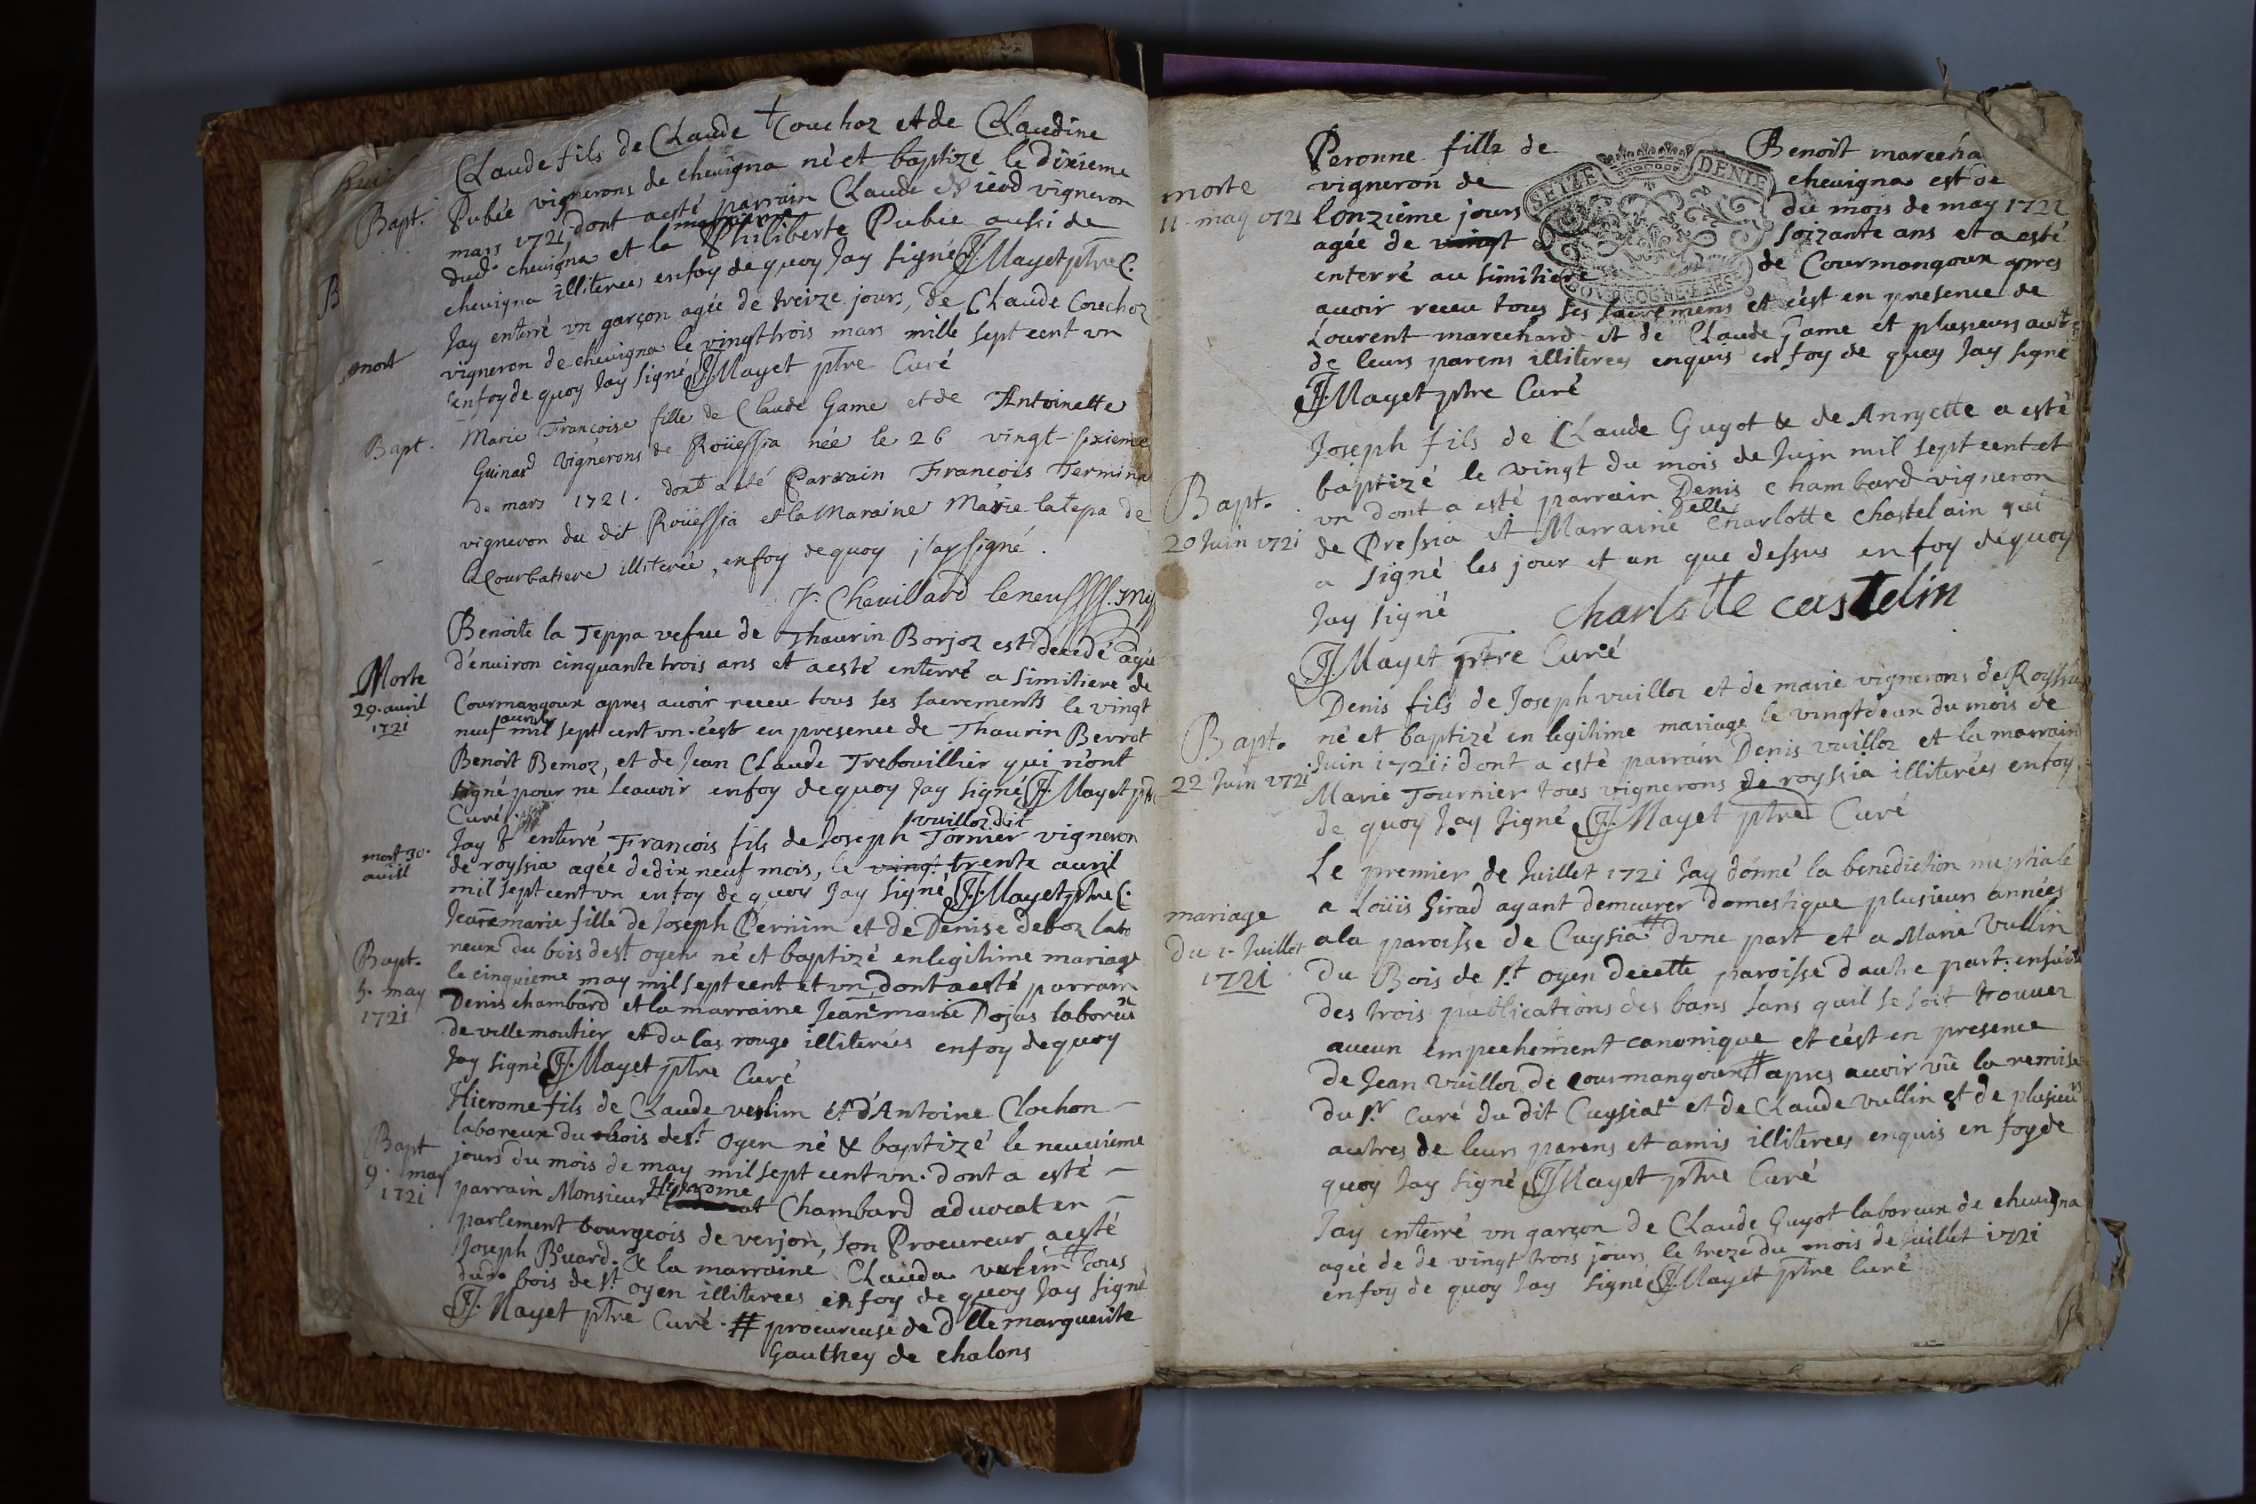 Claude fils de Claude + Couchoz et de Claudine
Bapt. Pubée vignerons de chevigna né et baptizé le dixieme
mars 1721 dont a esté parrain Claude vigneron
dud. chevigna et la marraine Philiberte Pubee aussi de
chevigna illiterees enfoy de quoy Jay signé J Mayet ptre C.
B
Jay enterré un garçon agée de treize jours, de Claude Couchoz
mort vigneron de chevigna le vingt trois mars mille sept cent vn
enfoy de quoy Jay signé J Mayet ptre Curé
Bapt. Marie Françoise fille de Claude Game et de Antoinette
Guinard Vignerons de Roüessia née le 26 vingt-sixieme
de mars 1721. dont a été Parrain Francois
vigneron du dit Roüessia et la Maraine Marie latepa de
la Courbatiere illiterée, enfoy de quoy j'ay signé.
J. Chevillard
Benoite la Teppa vefue de Thaurin Borjoz est decedé agée
d'enuiron cinquante trois ans et a esté enterré a simitiere de
Morte
29. auril
1721
Courmangoux apres auoir receu tous ses sacrements le vingt
neuf auril mil sept cent vn. c'est en presence de Thaurin Berrot
Benoît Bemoz, et de Jean Claude Trebouillier qui n'ont
signé pour ne scauoir enfoy de quoy Jay signé J. Mayet ptre
Curé
Jay enterré Francois fils de Joseph vuilloz dit Tornier vigneron
mort 30.
auril
de royssia agée de dix neuf mois, le vingt trente auril
mil sept cent vn enfoy de quoy Jay signé J Mayet ptre C.
Jeanemarie fille de Joseph Pernim et de Denise deboz labo
reux du bois de st. oyen né et baptizé en legitime mariage
Bapt.
5. may
1721
le cinquieme may mil sept cent et vn, dont a esté parrain
Denis chambard et la marraine Jeane marie Dojas laboreux
de villemoutier et du Cas rouge illiterées enfoy de quoy
Jay signé J. Mayet ptre Curé
Hierome fils de Claude et d'Antoine Clochon
laboreux du bois de st. oyen né & baptizé le neuuieme
Bapt
9. may
1721
jours du mois de may mil sept cent vn. dont a esté
parrain Monsieur Hierome Chambard aduocat en
parlement bourgeois de verjon, son Procureur a esté
Joseph Buard. & la marraine Clauda # tous
dud. bois de st. oyen illiterees enfoy de quoy Jay signé
J. Mayet ptre Curé. # procureuse de dlle marguerite
Gauthey de chalons
Peronne fille de Benoît marecha
morte
11. may 1721
vigneron de chevigna est de
l'onzieme jours du mois de may 1721
agée de vingt soizzante ans et a esté
enterré au simitiere de Courmangoux apres
SEIZE DENIE
BOURGOGNE BRES
auoir receu tous ses sacremens et c'est en presence de
Lourent marechard et de Claude Game et plusieurs autres
de leurs parens illiterey enquis enfoy de quoy Jay signé
J. Mayet ptre Curé
Joseph fils de Claude Guyot & de Anryette a esté
baptizé le vingt du mois de Juin mil sept cent et
Bapt.
20 Juin 1721
vn dont a esté parrain Denis chambard vigneron
de Pressia et Marraine Delle Charlotte chastelain qui
a signé les jour et an que dessus enfoy de quoy
Jay signé charlotte castelin
J. Mayet ptre Curé
Denis fils de Joseph vuilloz et de marie vignerons de Royssia
né et baptizé en legitime mariage le vingt deux du mois de
Bapt.
22 Juin 1721
Juin 1721; dont a esté parrain Denis vuilloz et la marraine
Marie Tournier tous vignerons de royssia illiterées enfoy
de quoy Jay signé J. Mayet ptre Curé
Le premier de Juillet 1721 Jay donné la benediction nuptiale
a Loüis Girad ayant demeurer domestique plusieurs années
mariage
du 1. Juillet
1721
a la paroisse de Cuysia # d'vne part et a Marie Vullin
du Bois de st. oyen decette paroisse d'autre part. ensuite
des trois publications des bans sans quil se soit trouuez
aucun empechement canonique et c'est en presence
de Jean Vuilloz de Courmangoux # apres auoir vû la remise
du Sr. Curé du dit Cuysiat et de Claude Vullin et de plusieurs
autres de leurs parens et amis illiterees enquis enfoy de
quoy Jay signé J Mayet ptre Curé
Jay enterré vn garçon de Claude Guyot laboreux de chevigna
agée de de vingt trois jours le treze du mois de Juillet 1721
enfoy de quoy Jay signé J Mayet ptre Curé